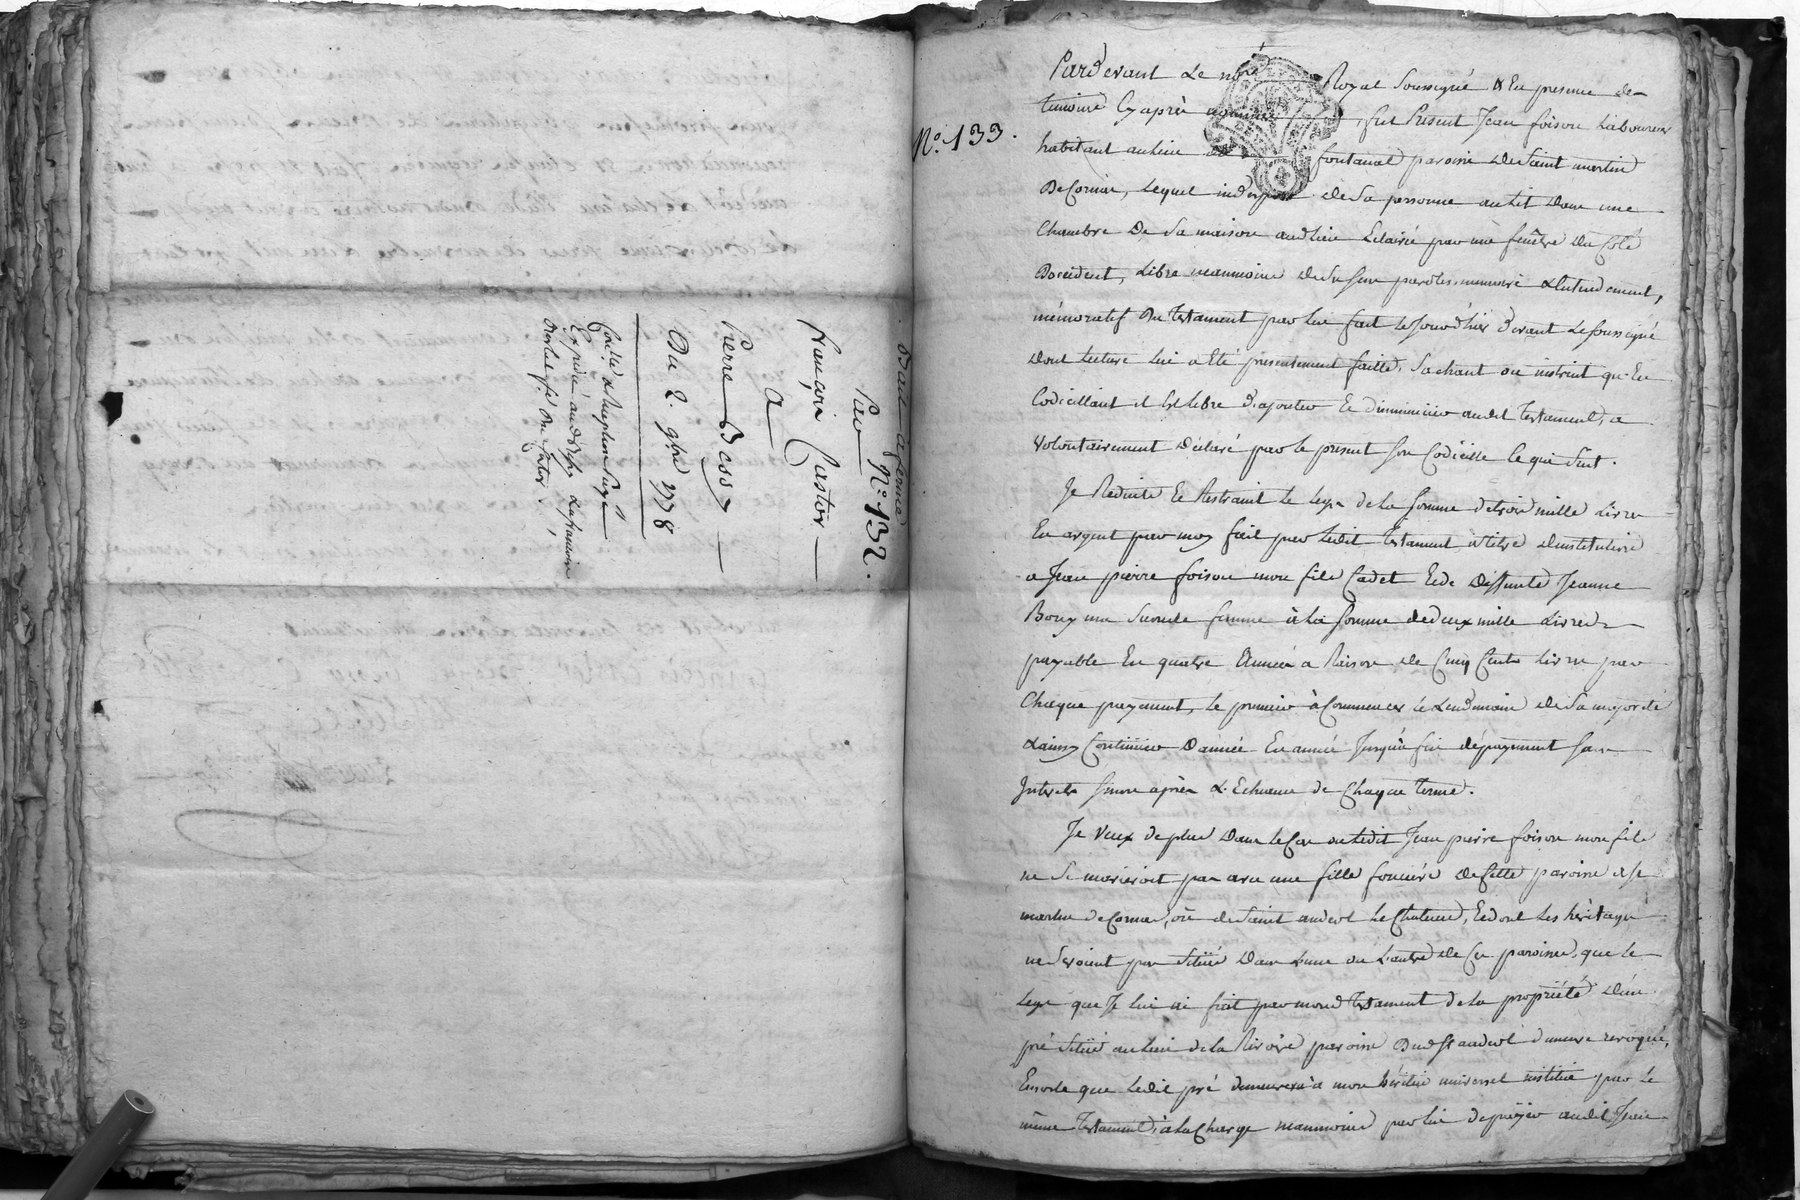 Bail a ferme
N.° 132.
Par
François Castor
A
Pierre Bess
Du 2. 9bre 1778
Du Castor.
N.° 133.
Pardevant Le no.re Royal Soussigné & En presence de
temoins Cy après nommés, fut Present Jean foison Laboureur
habitant au lieu de fontanal paroisse De Saint martin
De Cornas, Lequel indisposé de Sa personne au lit dans une
Chambre De Sa maison audt lieu Eclairée par une fenêtre Du Coté
Doccident, Libre neanmoins de Ses Sens parolles memoire & Entendement,
mémoratif Du testament par lui fait Le Jourdhier Devant Le soussigné
Dont lecture lui a Eté presentement faitte, Sachant ou instruit qu'En
Codicillant il Est Libre D'ajouter Et diminuer audit testament, a
Volontairement Déclaré par le present Son Codicille Ce qui Suit.
Je Reduits Et Restraint Le legs de La Somme de trois mille Livres
En argent par moy fait par Ledit testament à titre Dinstitution
a Jean pierre foison mon fils Cadet Et de Deffunte Jeanne
Bony ma Seconde femme à La Somme de deux mille Livres
payable En quatre Années a Raison de Cinq Cents Livres par
Chaque payement, Le premier à Commencer Le Lendemain de Sa majorité
& ainsy Continuer D'année En année Jusqu'à fin de payement Sans
Interets Sinon après L'Echeance de Chaque terme.
Je Veux de plus Dans le Cas ou Ledit Jean pierre foison mon fils
ne Se marieroit pas avec une fille fonciere De Cette paroisse de St
martin de Cornas, où de Saint andeol Le Chateau, Et dont Les héritages
ne Seroient pas Situés Dans L'une ou L'autre de Ces paroisses, que le
legs que Je lui ai fait par mond. testament de La propriété D'un
pré Situé au lieu de la Rivoire paroisse Dud. St andeol demeure revoqué,
Ensorte que Ledit pré demeurera à mon héritier universel institué par Le
même testament, à La Charge neanmoins par lui de payer audit Jean